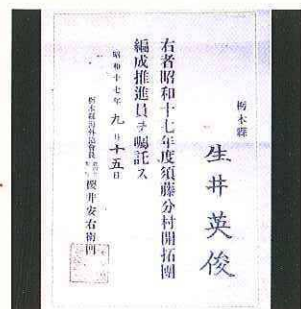 栃木縣
生井英俊
右者昭和十七年度須藤分村開拓團
編成推進員ヲ囑託ス
昭和十七年九月十五日
栃木縣海外協會長 櫻井安右衞門